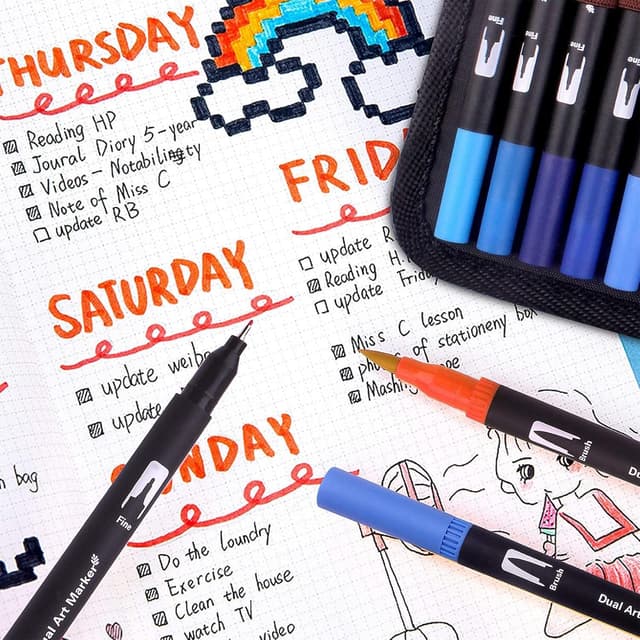 THURSDAY
Reading HP
Joural Diory 5-year
Videos - Notability
Note of Miss C
update RB
FRID
update R
Reading H.
update Frid
Miss C lesson
of stationeny box
Mash
SATURDAY
update weibo
update
NDAY
Do the loundry
Exercise
Clean the house
watch TV
video
bag
Fine
Fine
Fine
Fine
Fine
Dual Art Marker
Brush
Brush
Dual Art